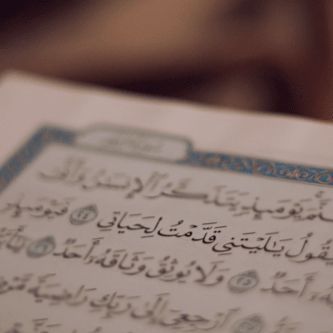 يَوْمَئِذٍ يَتَذَكَّرُ ٱلْإِنسَٰنُ وَأَنَّىٰ
يَقُولُ يَٰلَيْتَنِى قَدَّمْتُ لِحَيَاتِى ٢٤ فَيَوْمَئِذٍ
أَحَدٌ ٢٥ وَلَا يُوثِقُ وَثَاقَهُۥٓ أَحَدٌ ٢٦
ٱرْجِعِىٓ إِلَىٰ رَبِّكِ رَاضِيَةً